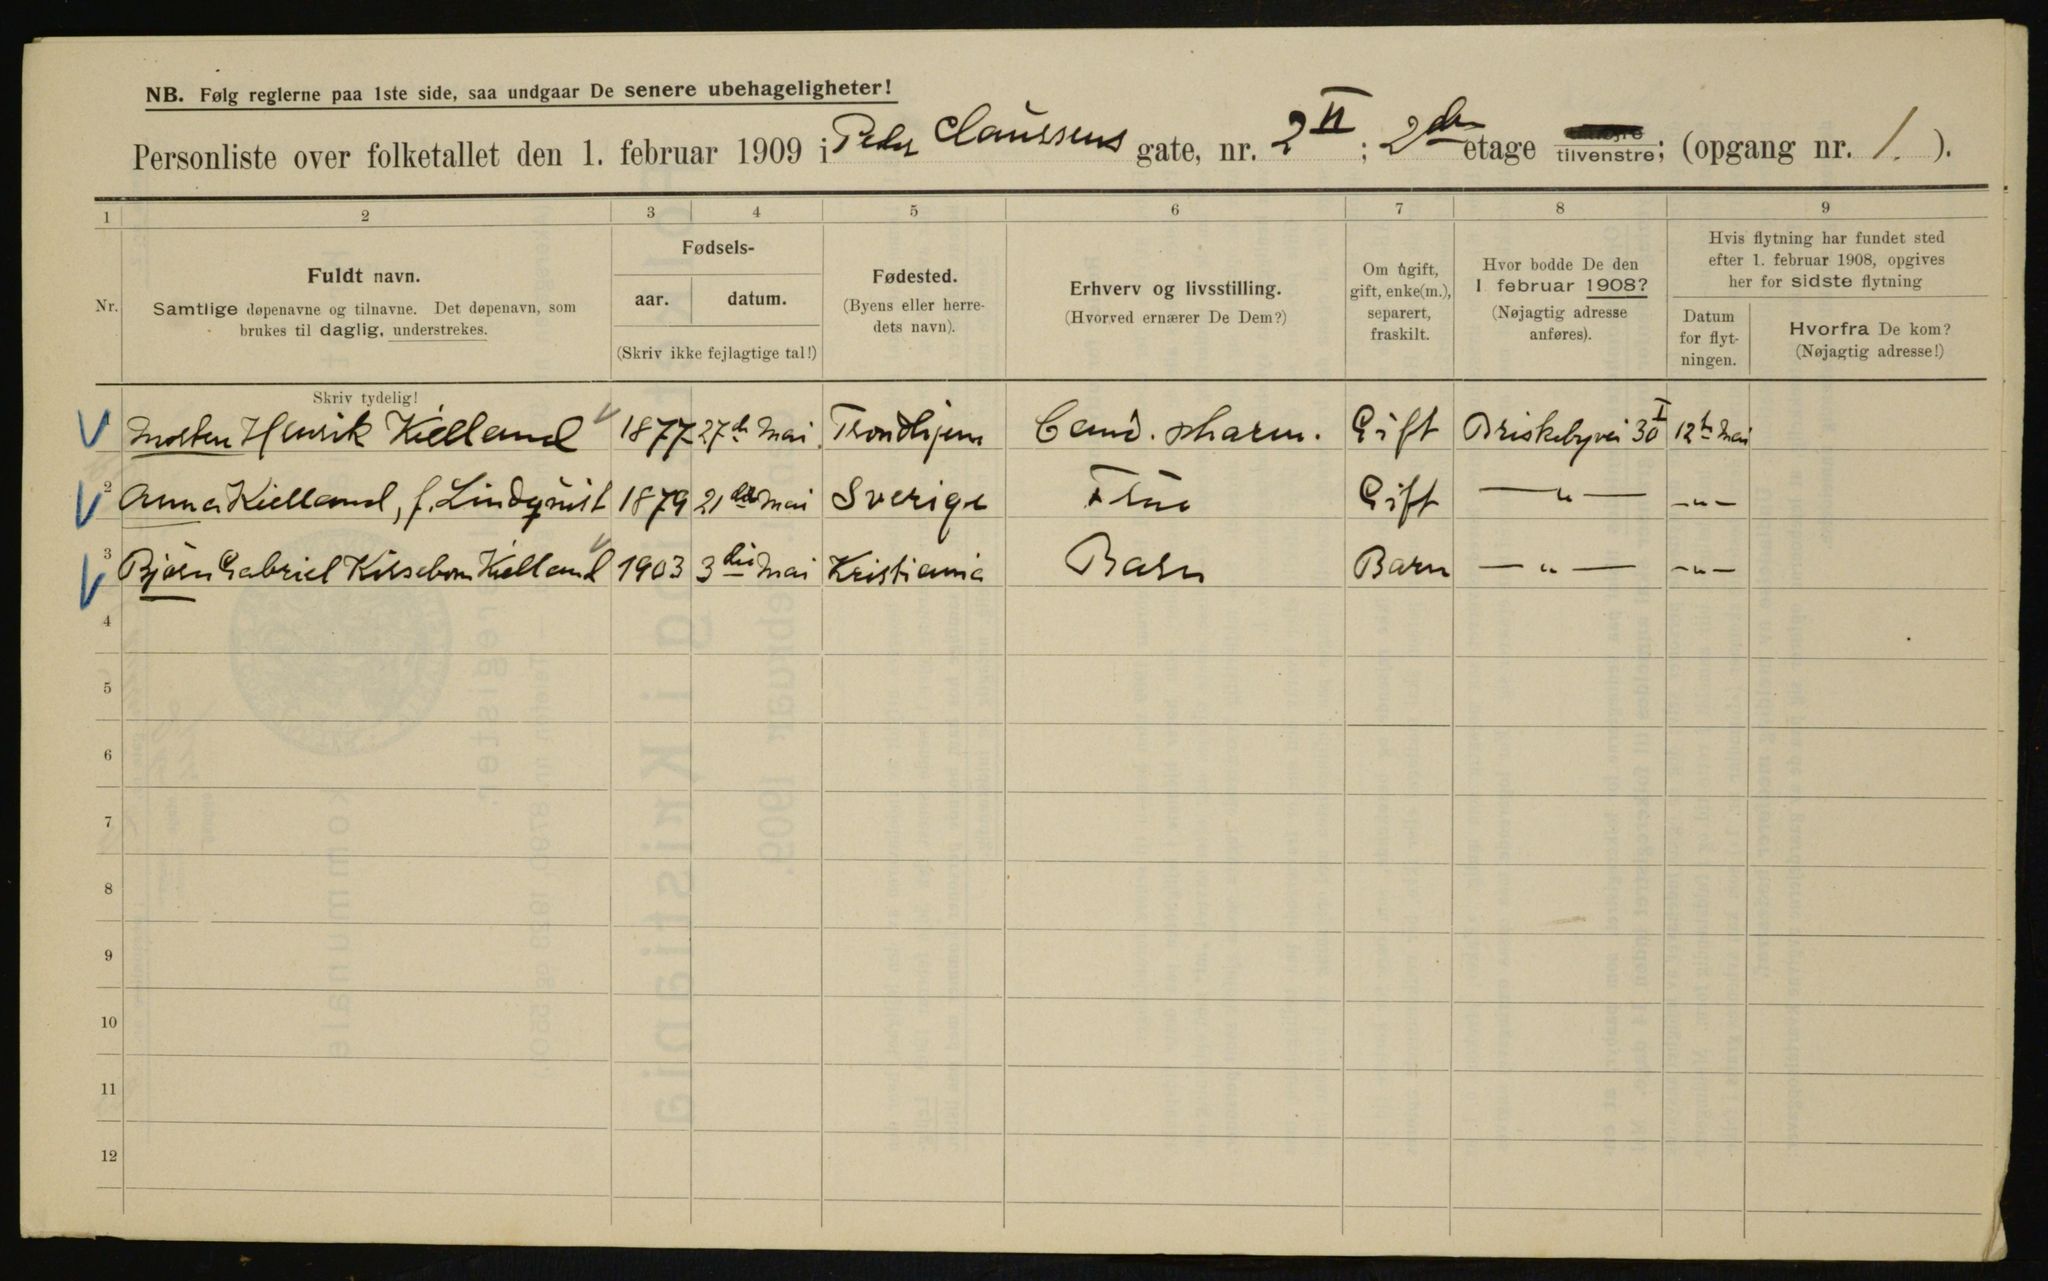 NB. Følg reglerne paa 1ste side, saa undgaar De senere ubehageligheter!
Personliste over folketallet den 1. februar 1909 i Peder Claussens gate, nr. 2 II; 2den etage tilvenstre; (opgang nr. 1.).
1 2 3 4 5 6 7 8 9
Nr.
Fuldt navn.
Samtlige døpenavne og tilnavne. Det døpenavn, som
brukes til daglig, understrekes.
Fødsels-
aar. datum.
(Skriv ikke fejlagtige tal!)
Fødested.
(Byens eller herre-
dets navn).
Erhverv og livsstilling.
(Hvorved ernærer De Dem?)
Om ugift,
gift, enke(m.),
separert,
fraskilt.
Hvor bodde De den
1 februar 1908?
(Nøjagtig adresse
anføres).
Hvis flytning har fundet sted
efter 1. februar 1908, opgives
her for sidste flytning
Datum
for flyt-
ningen.
Hvorfra De kom?
(Nøjagtig adresse!)
Skriv tydelig!
Morten Henrik Kielland 1877 27de Mai Trondhjem Cand. pharm. Gift Briskebyvei 30 I 12te Mai
2 Anna Kielland, f. Lindqvist 1879 21de Mai Sverige Frue Gift — " — - " -
3 Bjørn Gabriel Kirsebom Kielland 1903 3die Mai Kristiania Barn Barn — " — - " -
4
5
6
7
8
9
10
11
12